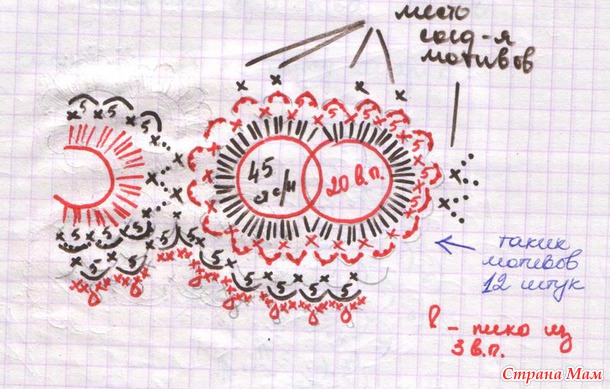 место
соед-я
мотивов
5 5 5
5
5
45
с/н
20 в.п.
5 5
5 5 5
5 5 5 5
таких
мотивов
12 штук
- пико из
3 в.п.
Страна Мам